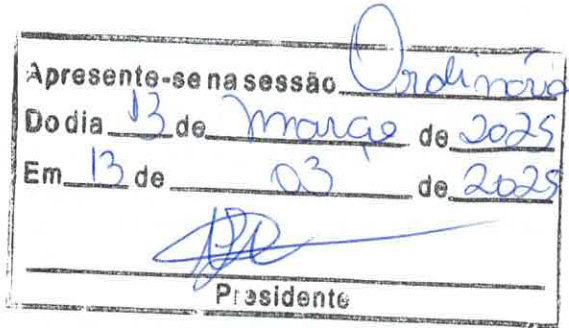 Apresente-se na sessão Ordinária
Do dia 13 de março de 2025
Em 13 de 03 de 2025
Presidente